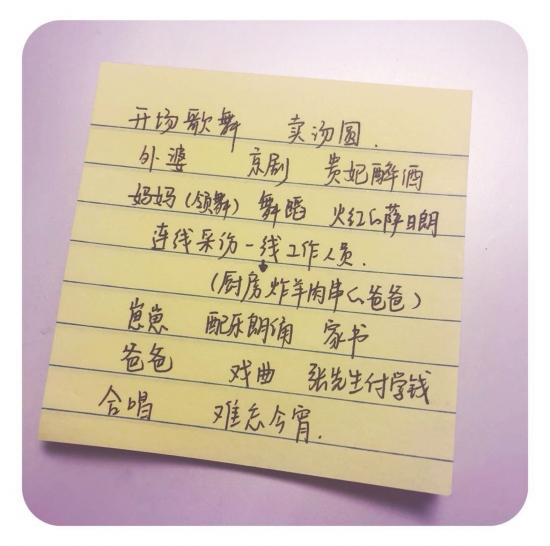 开场歌舞 卖汤圆.
外婆 京剧 贵妃醉酒
妈妈(领舞) 舞蹈 火红的萨日朗
连线采访一线工作人员.
(厨房炸羊肉串的爸爸)
崽崽 配乐朗诵 家书
爸爸 戏曲 张先生付学钱
合唱 难忘今宵.